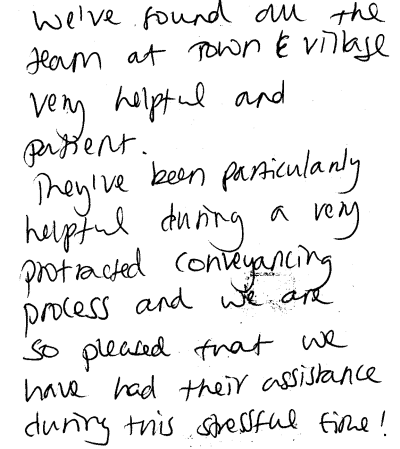 We've found all the
team at Town & Village
very helpful and
patient.
They've been particularly
helpful during a very
protracted conveyancing
process and we are
so pleased that we
have had their assistance
during this stressful time!